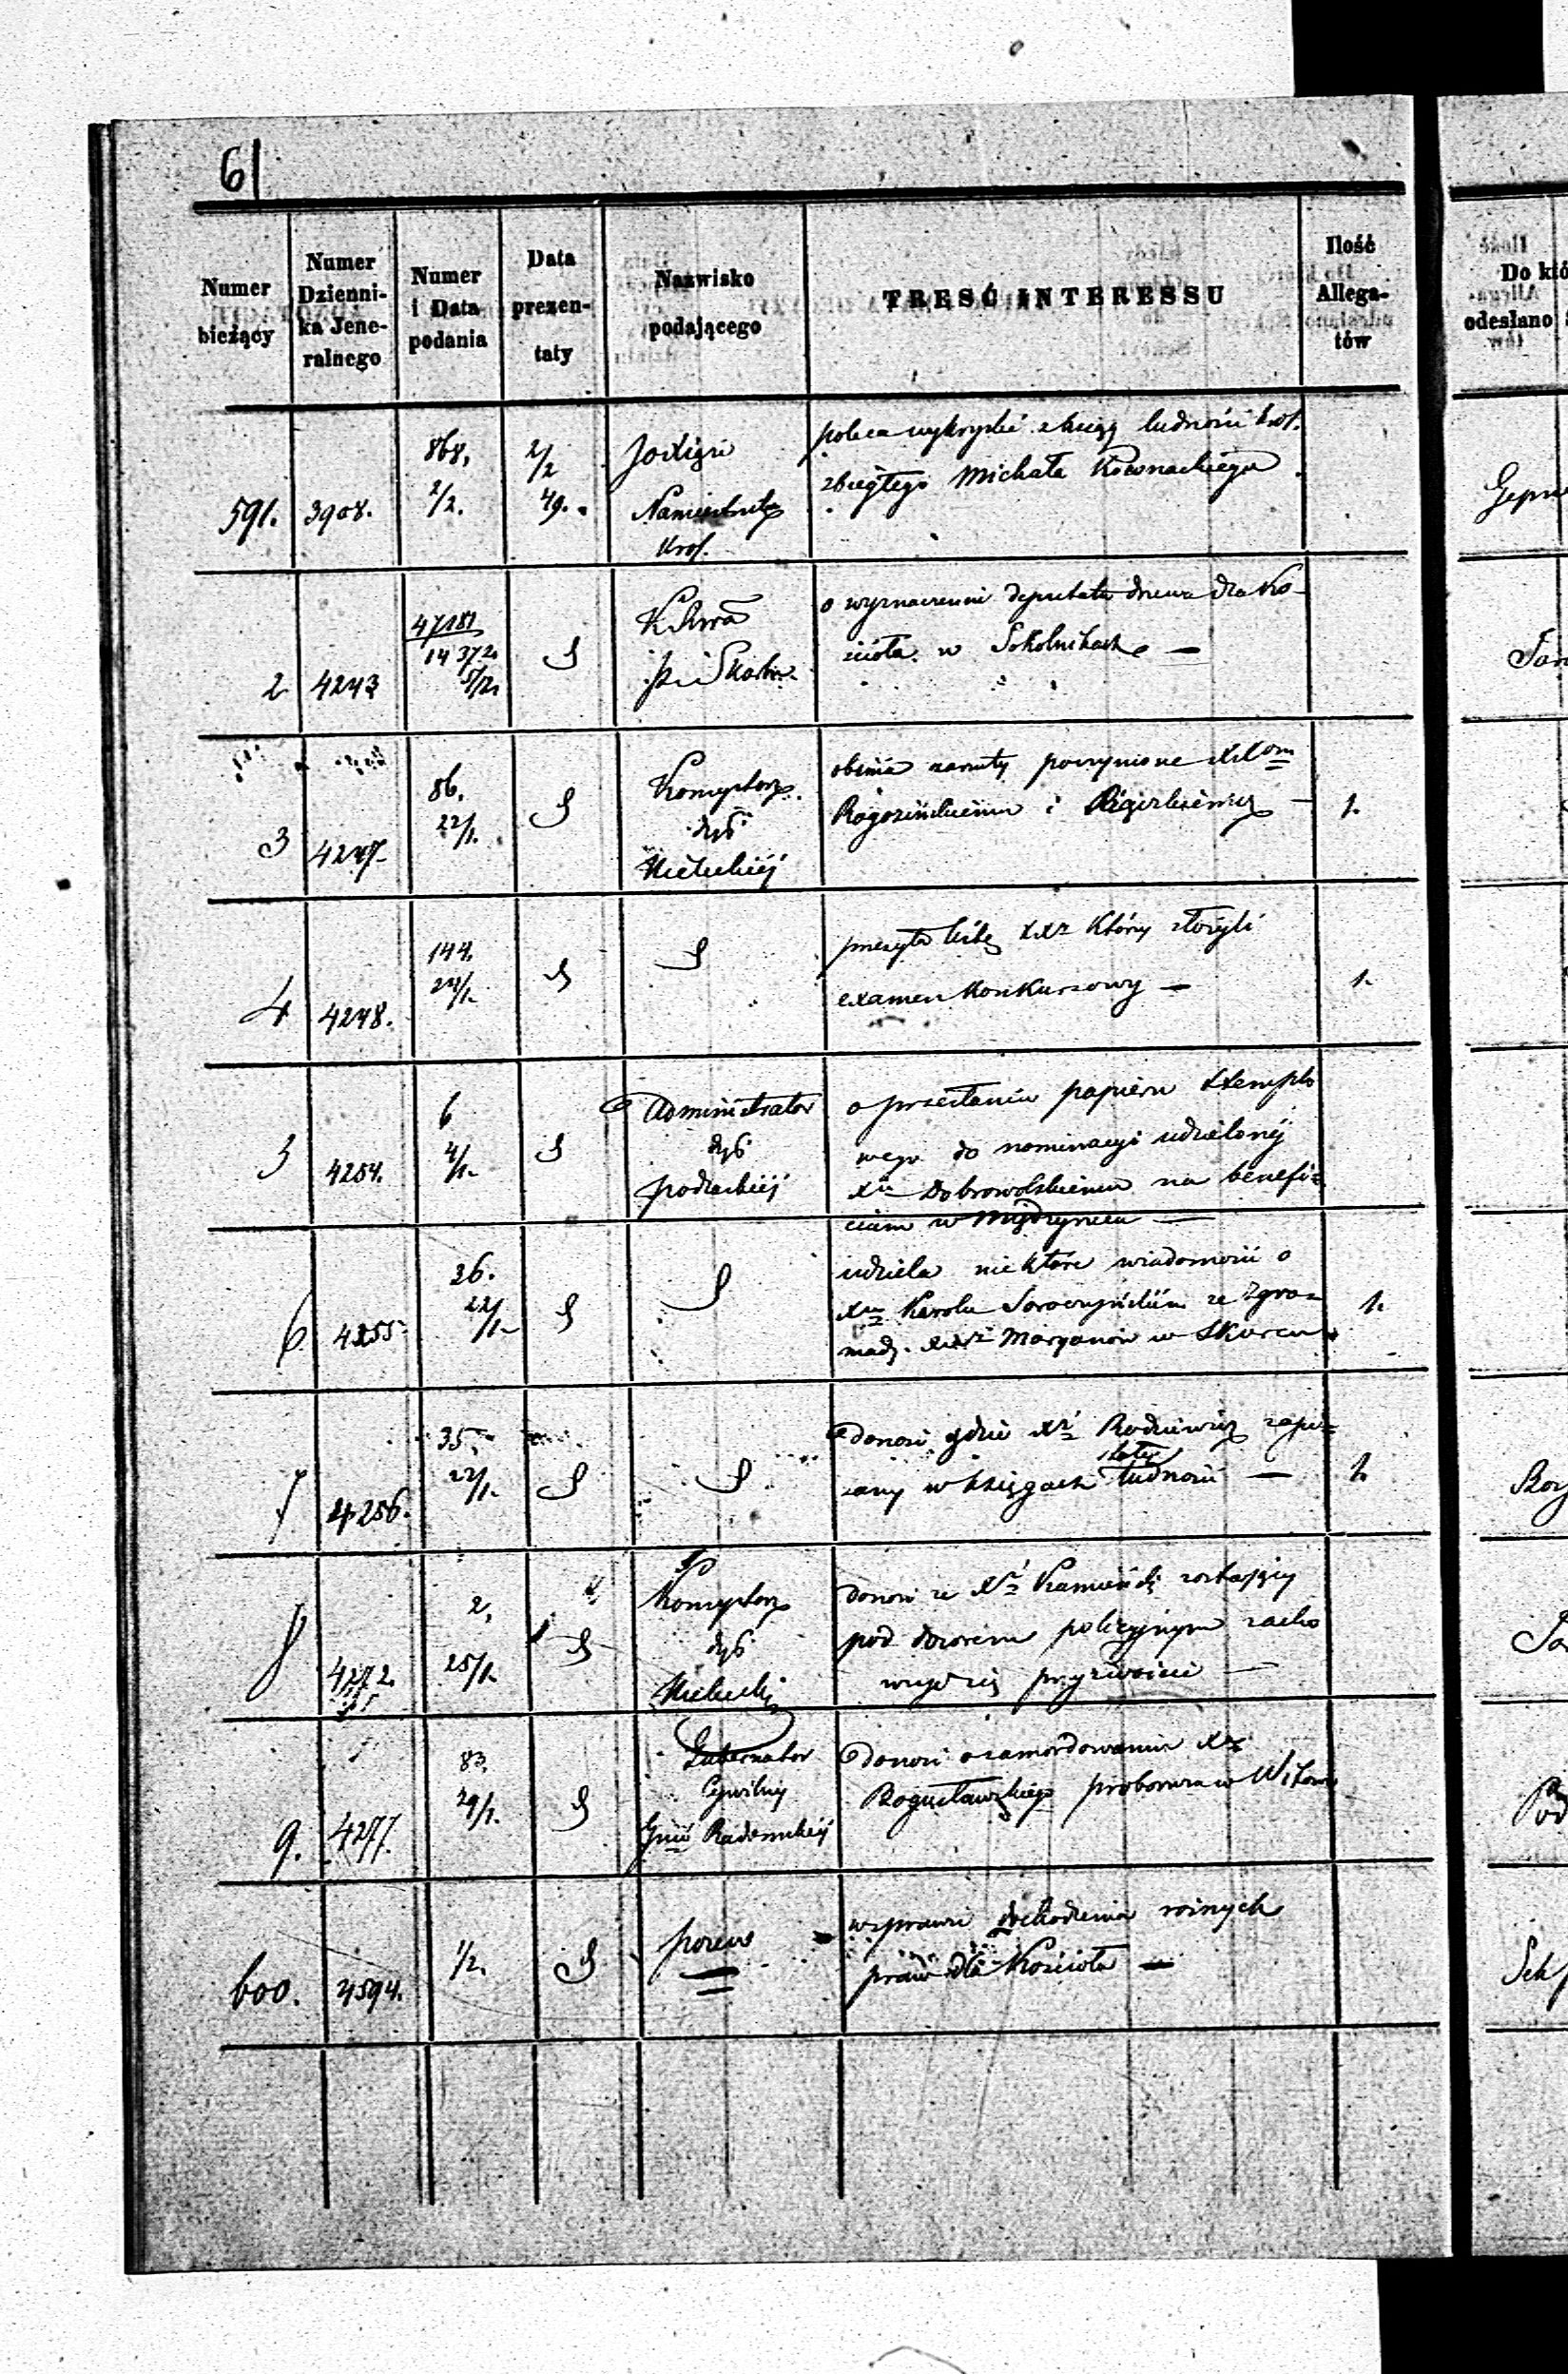 61
Numer bieżący
Numer Dzienni-ka Jene-ralnego
Numer i Data podania
Data prezen-taty
Nazwisko podającego
TREŚĆ INTERESSU
Ilość Allega-tów
Do któ
odesłano
591. 3908. 868, 2/2. 2/2 49. Namiestnika Król.
poleca wykryślić z księgi ludności król.
zbiegłego Michała Kownackiego
2 4243 47181 14372 5/2 S
o wyznaczenie deputatu drzewa dla Ko-
ścioła w Sokolnikach —
3 4247 86. 22/1. S Konsystorz dyć Kieleckiéj
obsiła zarzuty poczynione XXom
Rogozińskiemu i — 1.
4 4248. 144. 24/1. S S
przesyła listę XXz Który złożyli
examen Konkursowy — 1.
5 4254. 6 4/1. S Administrator dyć podlaskiéj
o przesłaniu papieru stemplo
wego do nominacyi udzielonéj
Xu Dobrowolskiemu na benefi-
cium w Międzyrzecu —
6 4255 36. 22/1. S S
udziela niektóre wiadomości o
Xu Karolu ze Zgro-
madz. Maryanów w Skurcu 1.
7 4256. 35. 22/1. S S
donosi gdzie Xz Rodziewicz zapi-
sany w księgach stałéj ludności — 1.
8 4272. 2, 25/1. S Konsystorz dyć Kielecki
donosi że Xz Kamiński zostający
pod dozorem policyjnym zacho
wuje się przyzwoicie —
9. 4277. 83. 29/1. S Gubernator Cywilny Gnii Radomskiéj
donosi o zamordowaniu Xz
Bogusławskiego proboszcza w
600. 4594. 1/2. S pozew
w sprawie dochodzenia różnych
praw dla Kościoła —